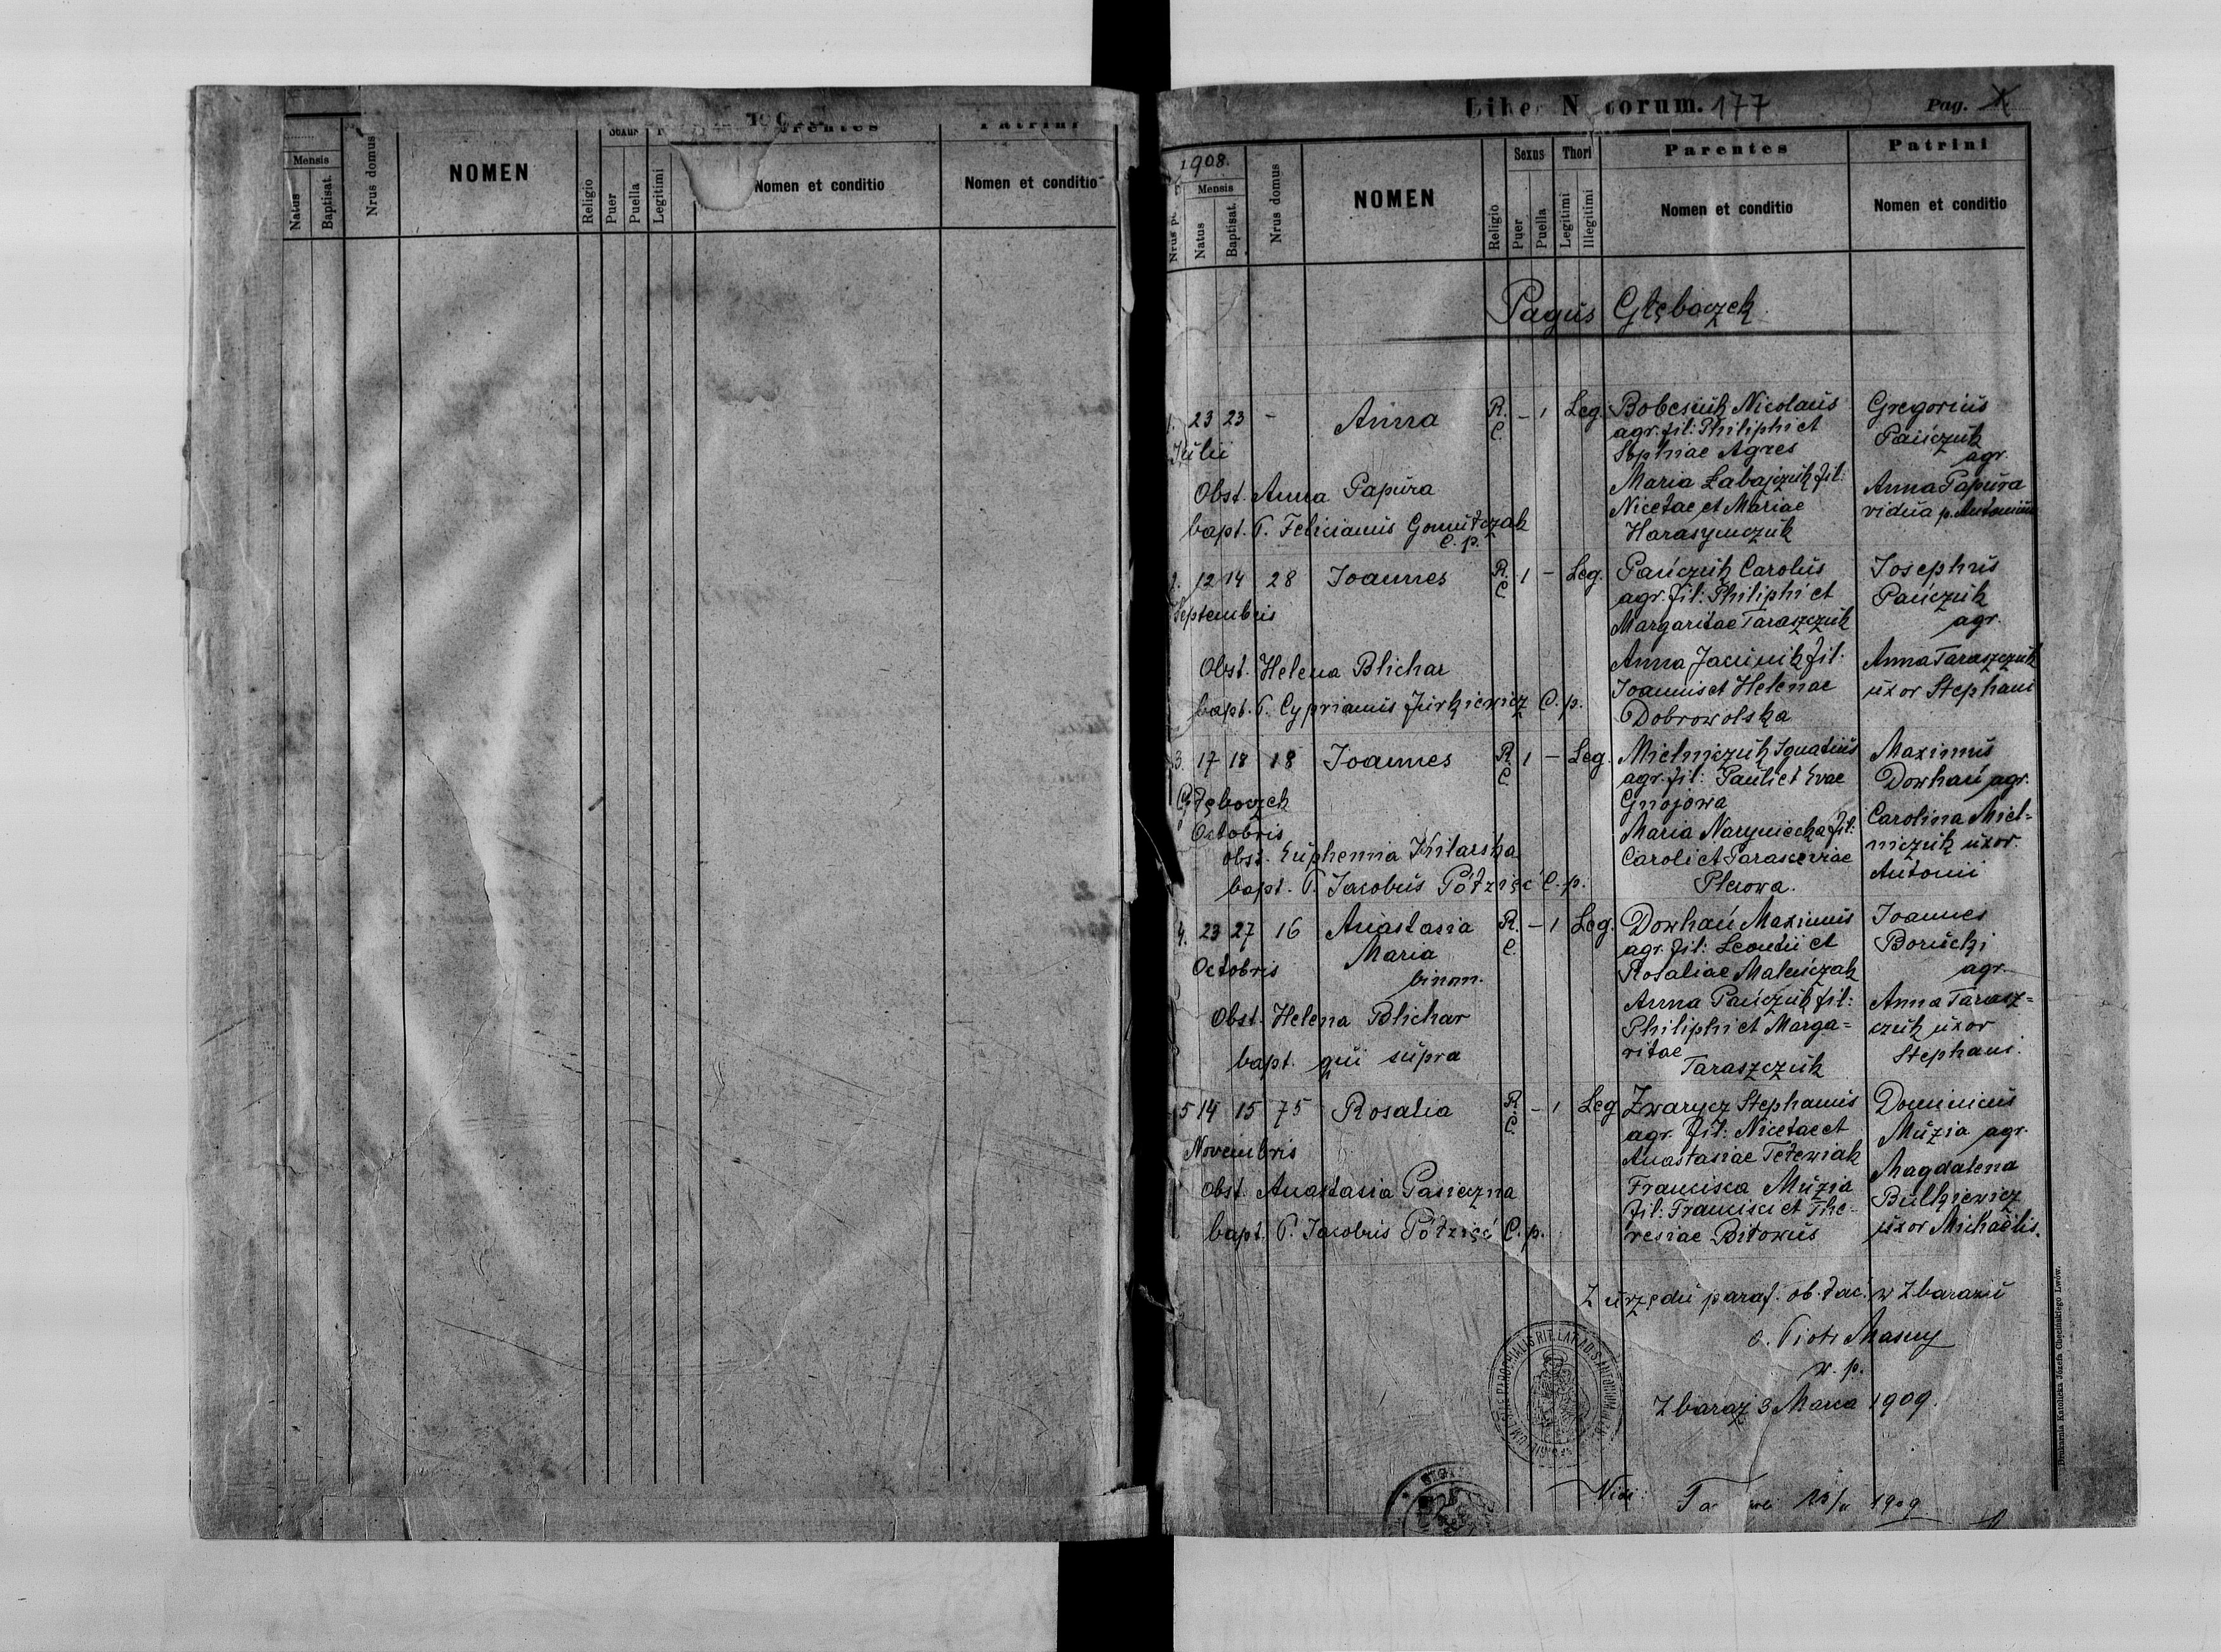 Mensis
Natus
Baptisat.
Nrus domus
NOMEN
Religio
Puer
Puella
Legitimi
Nomen et conditio
Patrini
Nomen et conditio
Pag.
177
1908.
Mensis
Natus
Baptisat.
Nrus domus
NOMEN
Religio
Sexus
Puer
Puella
Thori
Legitimi
Illegitimi
Parentes
Nomen et conditio
Patrini
Nomen et conditio
Pagus Głęboczek
1. 23 23 - Anna R. C. - 1 Leg.
Julii
Obst. Anna Papura
bapt. P. Felicianus
C. p.
Nicolaus
agr. fil: Philiphi et
Sophiae Agres
Maria Łabajczuk fil:
Nicetae et Mariae
Harasymczuk
Gregorius
Pańczuk
agr.
Anna Papura
vidua p. Antonium
2. 12 14 28 Joannes R. C. 1 - Leg.
Septembris
Obst. Helena Blichar
bapt. P. Cyprianus Jurkiewicz C. p.
Pańczuk Carolus
agr. fil: Philiphi et
Margaritae Taraszczuk
Anna fil:
Joannis et Helenae
Dobrowolska
Josephus
Pańczuk
agr.
Anna Taraszczuk
uxor Stephani
3. 17 18 18 Joannes R. C. 1 - Leg.
Głęboczek
Octobris
obst. Euphemia Kitarska
bapt. P. Jacobus Półzięć C. p.
Mielniczuk Ignatius
agr. fil: Pauli et Evae
Gnojowa
Maria Naryniecka fil:
Caroli et Parasceviae
Maximus
Dowhań agr.
Carolina Miel=
niczuk uxor.
Antonii
4. 23 27 16 Anastasia R. C. - 1 Leg.
Maria
binom.
Octobris
Obst. Helena Blichar
bapt. qui supra
Dowhań Maximus
agr. fil: Leontii et
Rosaliae Maleńczak
Anna Pańczuk fil:
Philiphi et Marga=
ritae
Taraszczuk
Joannes
Borucki
agr.
Anna Tarasz=
czuk uxor
Stephani.
5 14 15 75 Rosalia R. C. - 1 Leg
Novembris
Obst. Anastasia Pasieczna
bapt. P. Jacobus Półzięć C. p.
Zwarycz Stephanus
agr. fil: Nicetae et
Anastasiae Teterwiak
Francisca Muzia
fil: Francisci et The-
resiae Bitowus
Dominicus
Muzia agr.
Magdalena
Bulkiewicz
uxor Michaëlis.
Z urzędu paraf. ob. łac. w Zbarażu
o. Piotr Masny
w. p.
Zbaraż 3 Marca 1909.
Vidi:
1909
Drukarnia Katolicka Józefa Chęcińskiego Lwów.